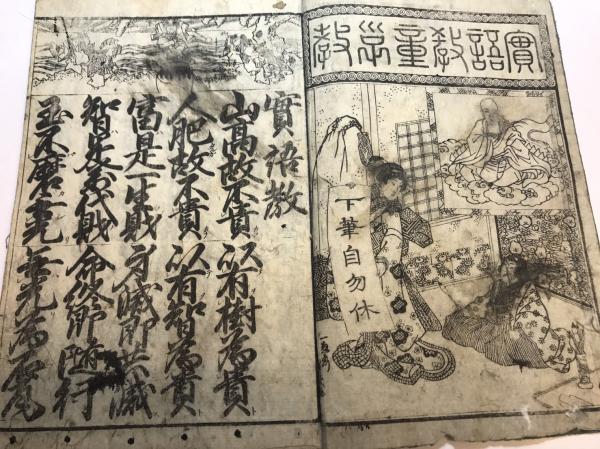 實語教童子教
下筆自勿休
實語教
山高故不貴 以有樹為貴
人肥故不貴 以有智為貴
富是一生財 身滅即共滅
智是萬代財 命終即随行
玉不磨無光 無光為石瓦